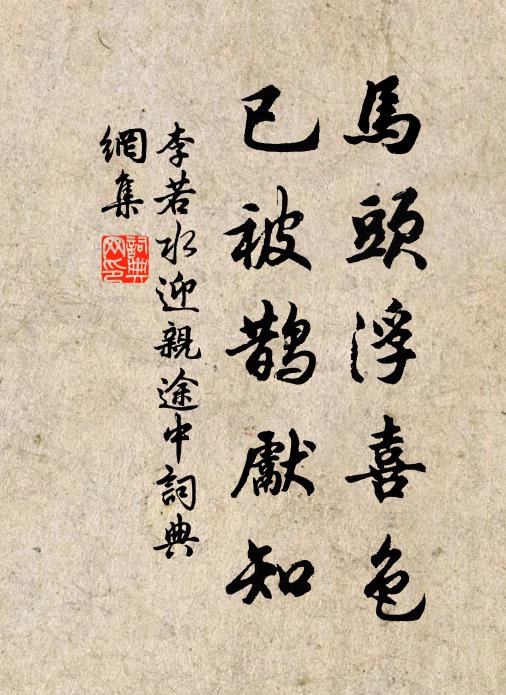 馬頭浮喜色
已被鵲獻知
李若水迎親途中詞典
網集
詞典
网印